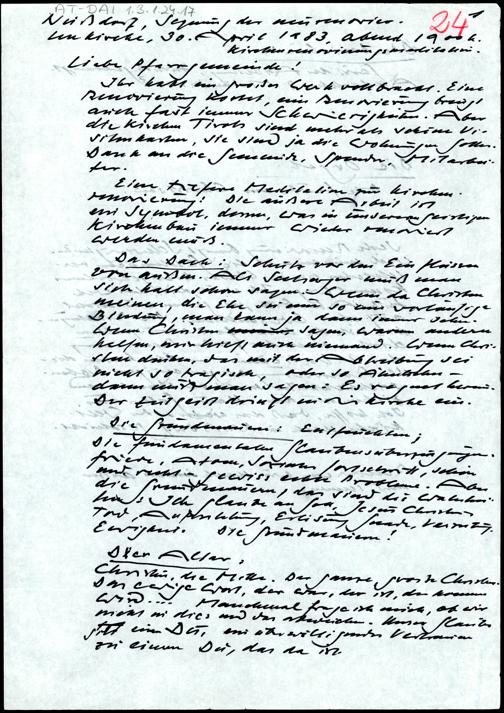 AT-DAI 1.3.1.24.17
24
Neißdorf, Segnung der neurenovier-
ten Kirche, 30. April 1983, abend 19 00 h.
Kirchenrenovierungsmeditation.
Liebe Pfarrgemeinde!
Ihr habt ein großes Werk vollbracht. Eine
Renovierung kostet, eine Renovierung bringt
auch fast immer Schwierigkeiten. Aber
die Kirchen Tirols sind mehr als schöne Vi-
sitenkarten, sie sind ja die Wohnungen Gottes.
Dank an die Gemeinde, Spender, Mitarbei-
ter.
Eine tiefere Meditation zur Kirchen-
renovierung: Die äußere Arbeit ist
ein Symbol, denn, was in unserem geistigen
Kirchenbau immer wieder renoviert
werden muß.
Das Dach: Schutz vor den Einflüssen
von außen. Als Seelsorger muß man
sich halt schon sagen: Wenn da Christen
meinen, die Ehe sei nur so eine vorläufige
Bindung, man kann ja dann immer
Wenn Christen sagen, warum anderen
helfen, mir hilft auch niemand. Wenn Chri-
sten denken, das mit der Abtreibung sei
nicht so tragisch, oder so Ähnliches -
dann muß man sagen: Es regnet herein.
Der Zeitgeist dringt in die Kirche ein.
Die Grundmauern: Entfeuchten;
Die fundamentalen Glaubensüberzeugungen.
Friede, Atom, sozialer Fortschritt, schön
und recht, gewiss echte Probleme. Aber
die Grundmauern, das sind die Wahrhei-
ten: Ich glaube an Gott, Jesus Christus
Tod, Auferstehung, Erlösung, Gnade,
Ewigkeit. Die Grundmauern!
Der Altar;
Christus, die Mitte. Der ganze große Christus.
Das ewige Wort, der war, der ist, der kommen
wird... Manchmal frage ich mich, ob wir
nicht in dies und das abweichen. Unser Glaube
gilt einem Du, ein Vertrauen
zu einem Du, das da ist